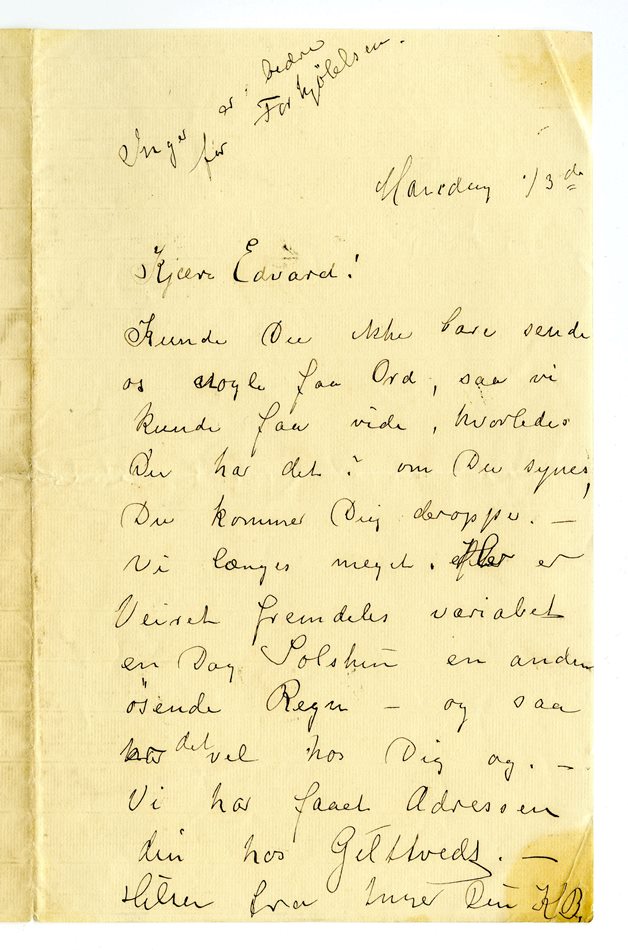 Inger er bedre
for Forkjölelsen.
Mandag 1/3 de
Kjære Edvard!
Kunde Du ikke bare sende
os nogle faa Ord, saa vi
kunde faa vide, hvorledes
Du har det? om Du synes,
Du kommer Dig deroppe. —
Vi længes meget. Her er
Veiret fremdeles variabet
en Dag Solskin en anden
ösende Regn — og saa
har det vel hos Dig og. —
Vi har faaet Adressen
din hos Giltveds. —
Hilsen fra Inger Din KB.